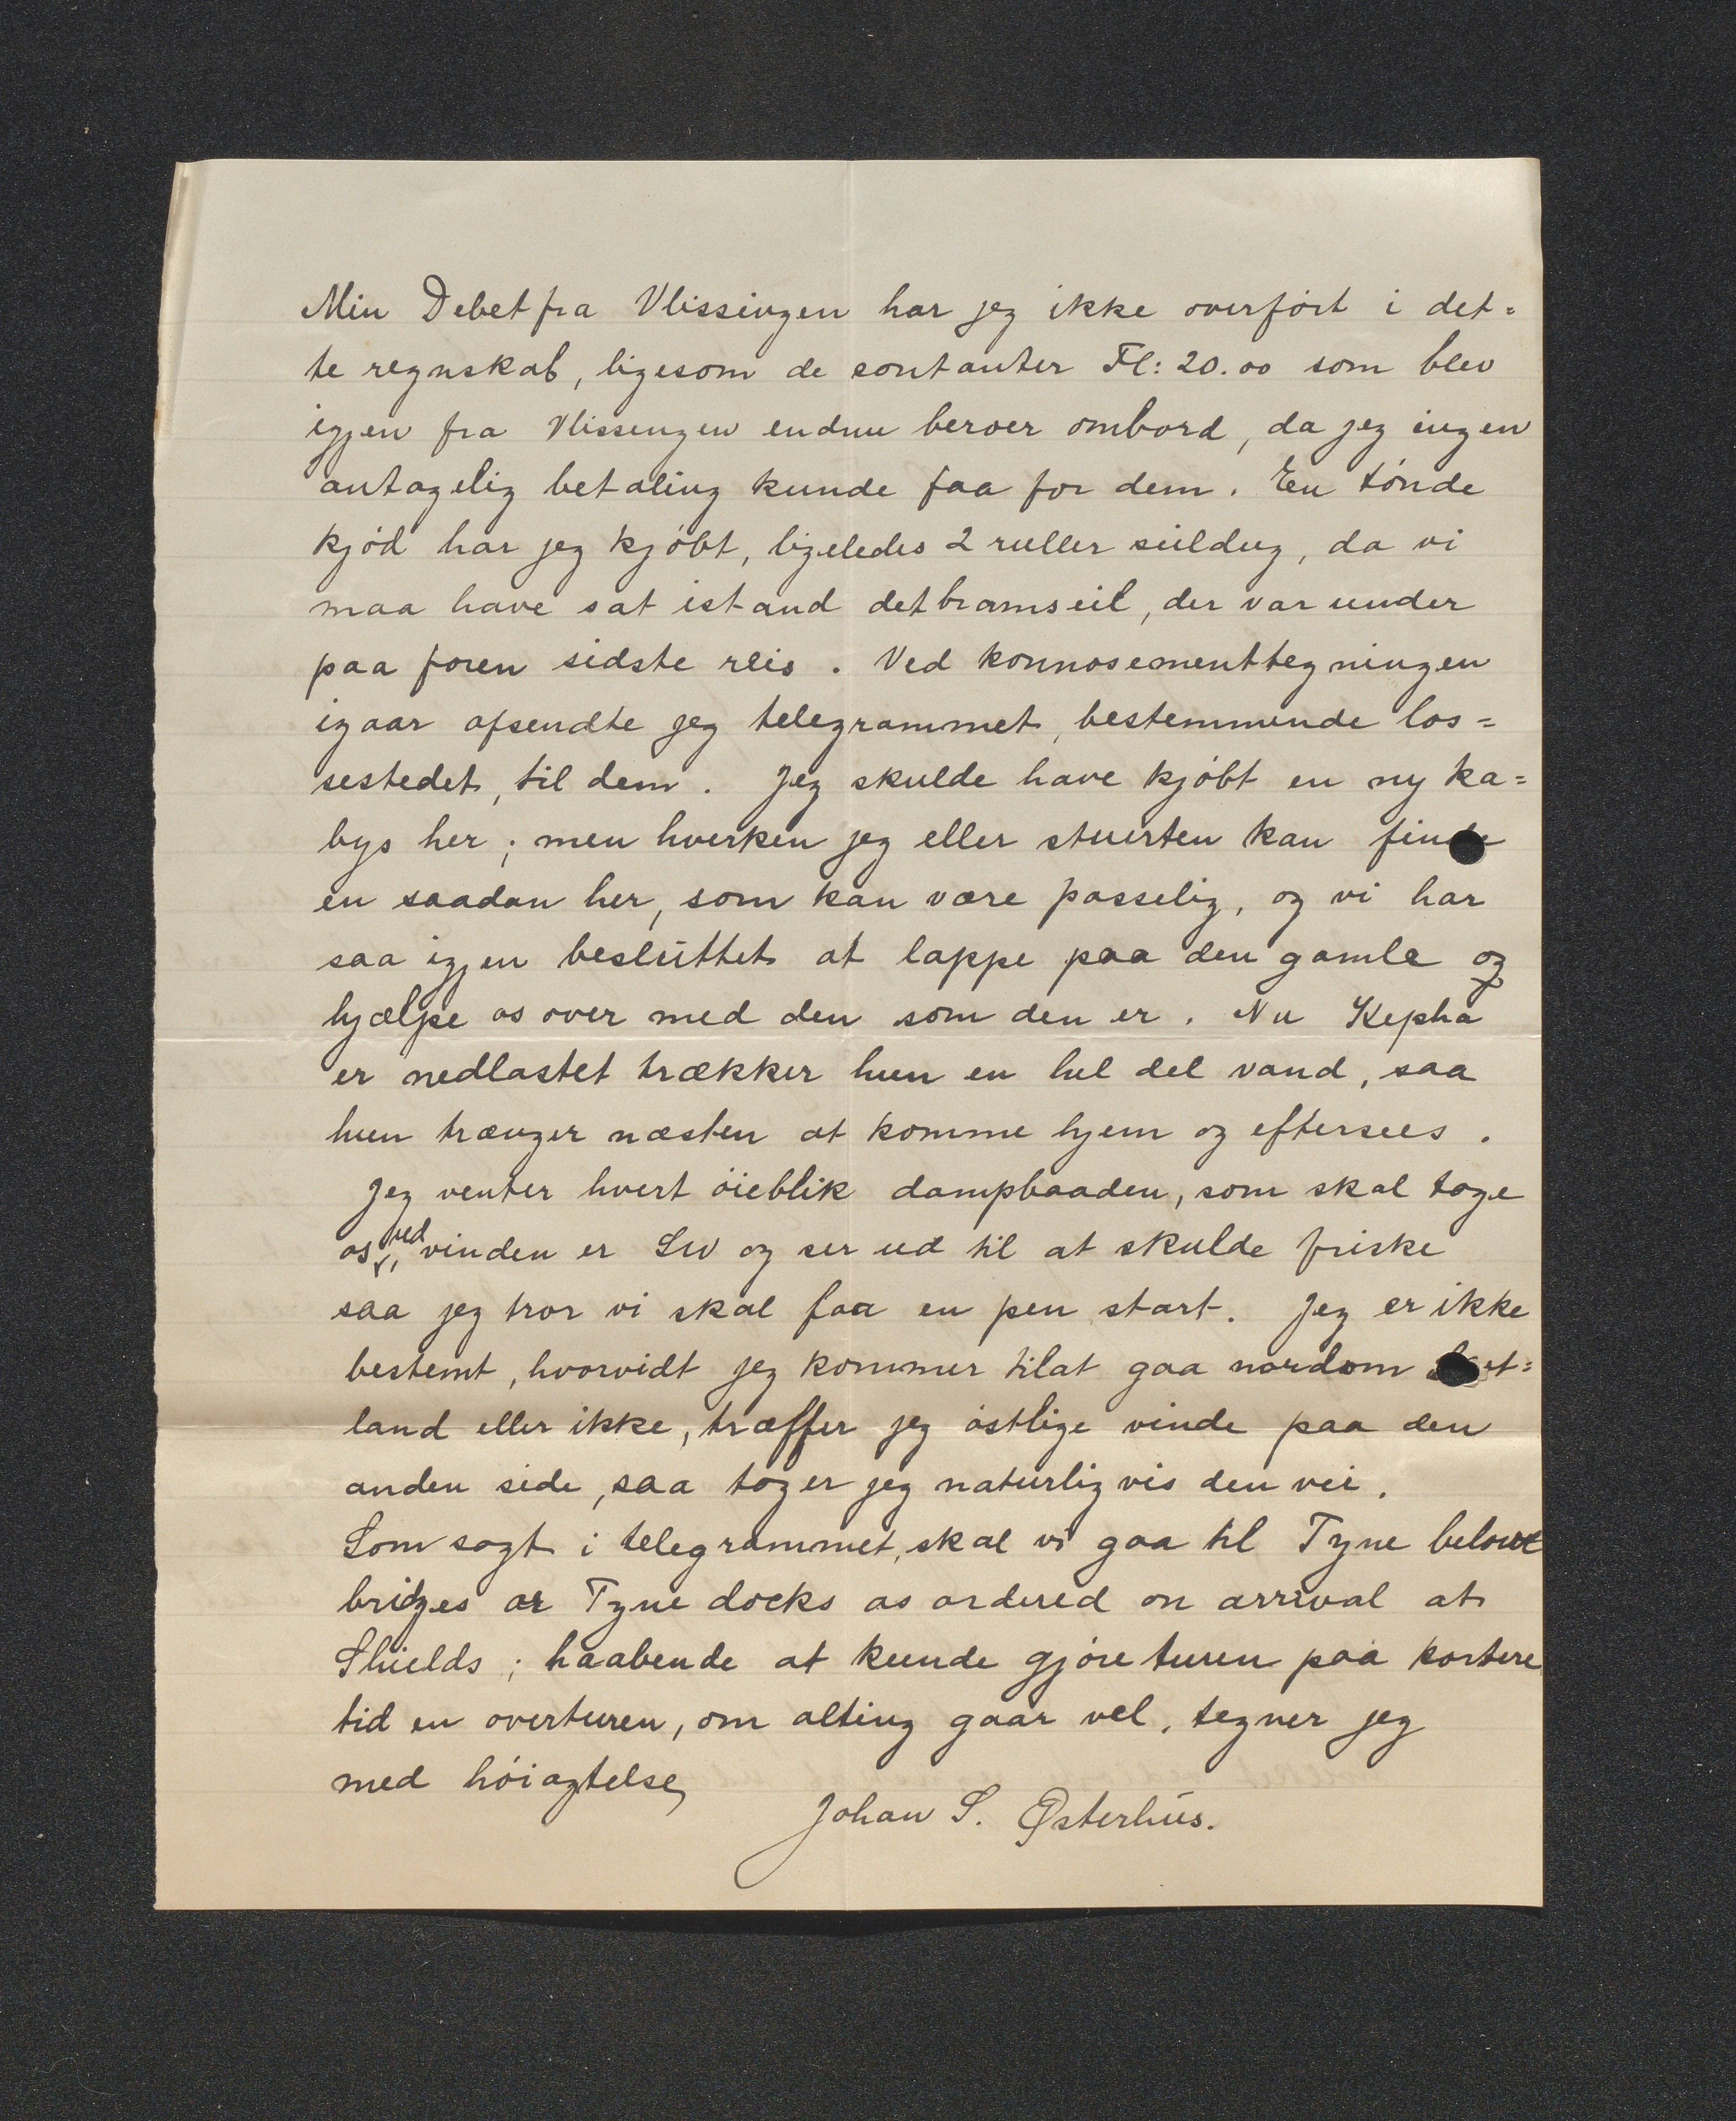 Min Debet fra Vlissingen har jeg ikke overført i det=
te regnskab, ligesom de contanter Fl: 20.00 som blev
igjen fra Vlissengen endnu beroer ombord, da jeg ingen
antagelig betaling kunde faa for dem. En tønde
kjød har jeg kjøbt, ligeledes 2 ruller seildug, da vi
maa have sat istand det bramseil, der var under
paa foren sidste reis. Ved konnosementtegningen
igaar afsendte jeg telegrammet, bestemmende los=
sestedet, til dem. Jeg skulde have kjøbt en ny ka=
bys her; men hverken jeg eller stuerten kan finde
en saadan her, som kan være passelig, og vi har
saa igjen besluttet at lappe paa den gamle og
hjælpe os over med den som den er. Nu Kepha
er nedlastet trækker hun en hel del vand, saa
hun trænger næsten at komme hjem og eftersees.
Jeg venter hvert øieblik dampbaaden, som skal tage
os ved, vinden er SW og ser ud til at skulde friske
saa jeg tror vi skal faa en pen start. Jeg er ikke
bestemt, hvorvidt jeg kommer tilat gaa nordom et=
land eller ikke, træffer jeg østlige vinde paa den
anden side, saa tager jeg naturligvis den vei.
Som sagt i telegrammet, skal vi gaa til Tyne below
bridges or Tyne docks as ordered on arrival at
Shields; haabende at kunde gjøre turen paa kortere
tid en overturen, om alting gaar vel, tegner jeg
med høiagtelse
Johan S. Østerhus.